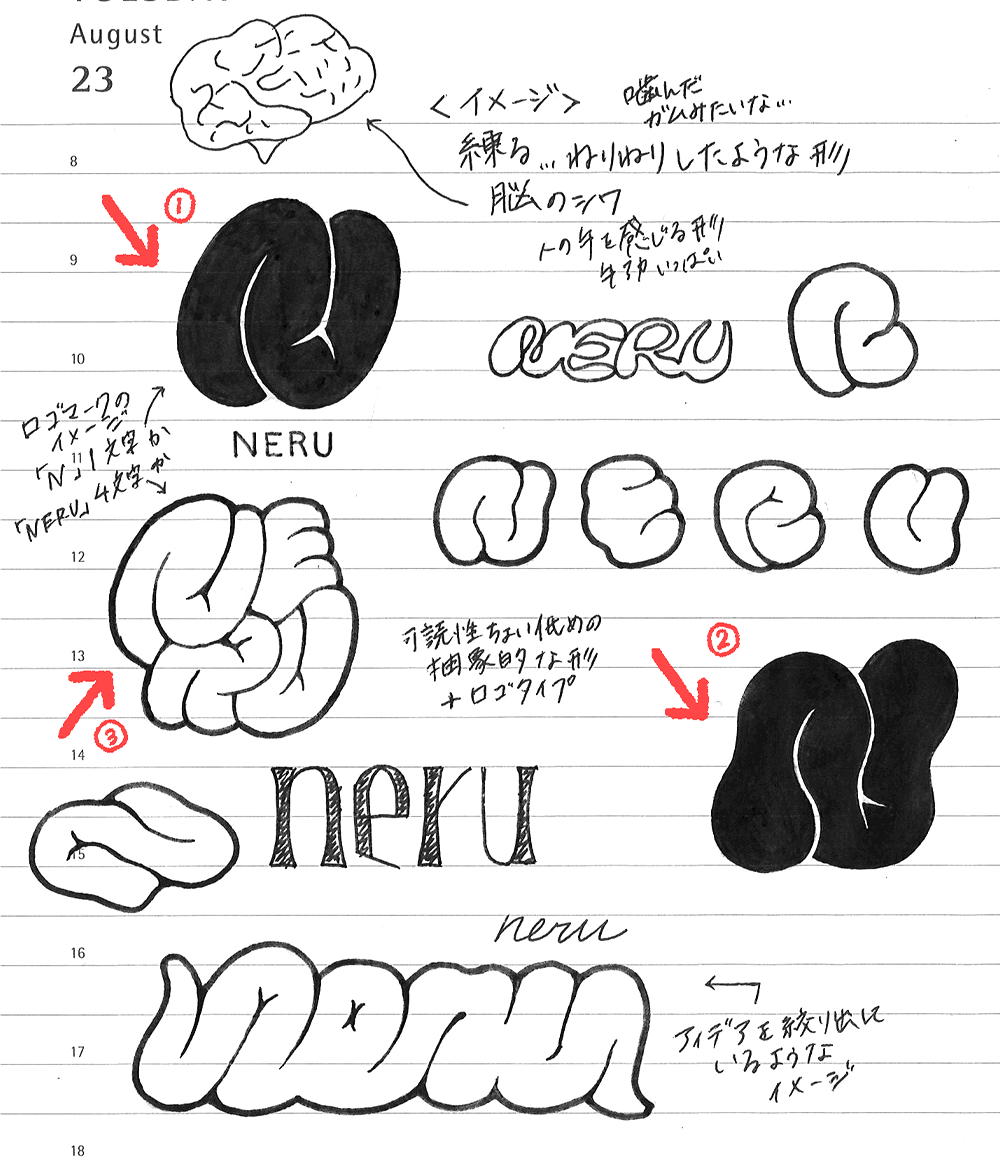 August
23
<イメージ>
噛んだ
ガムみたいな…
8
練る…ねりねりしたような形
脳のシワ
①
人の手を感じる形
9
NERU
10
ロゴマークの
イメージ
「N」1文字か
「NERU」4文字か
NERU
11
NERU
12
可読性ちょい低めの
抽象的な形
+ロゴタイプ
13
②
③
14
neru
15
neru
16
アイデアを絞り出して
いるような
イメージ
17
18